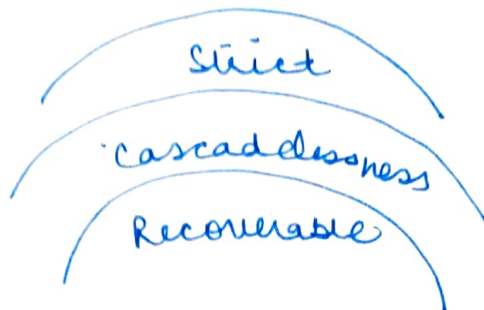 Strict
Cascadelessness
Recoverable